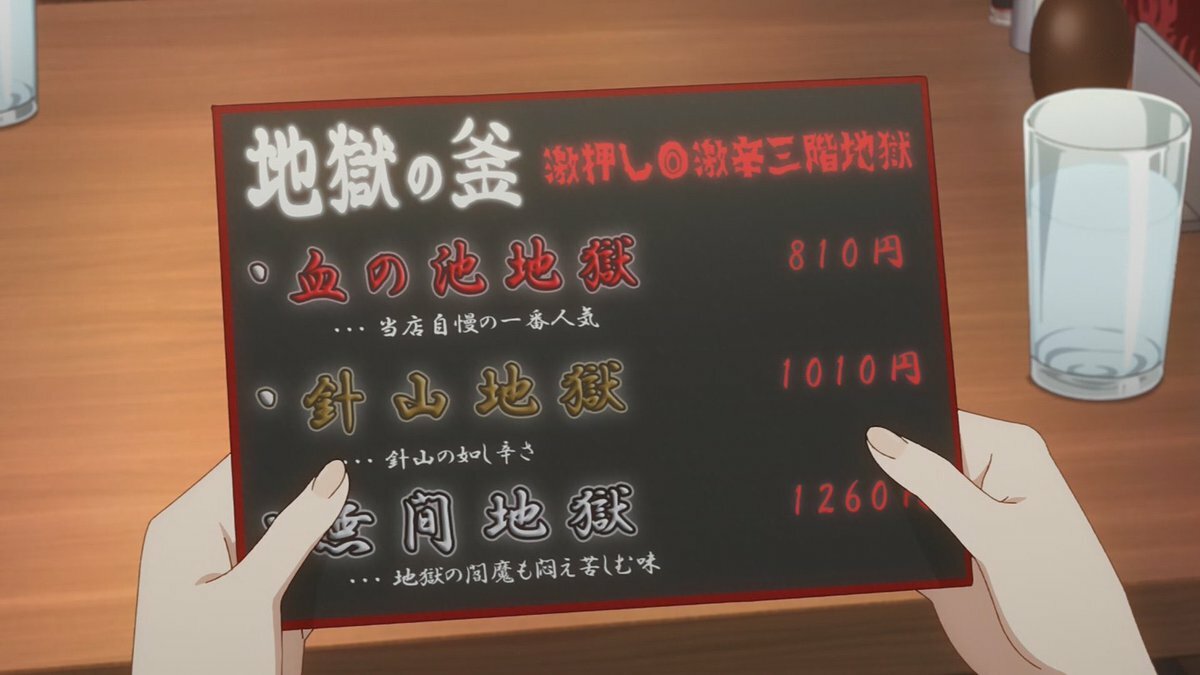 地獄の釜
激押し◎激辛三階地獄
・血の池地獄 810円
…当店自慢の一番人気
・針山地獄 1010円
…針山の如し辛さ
無間地獄 1260円
…地獄の閻魔も悶え苦しむ味